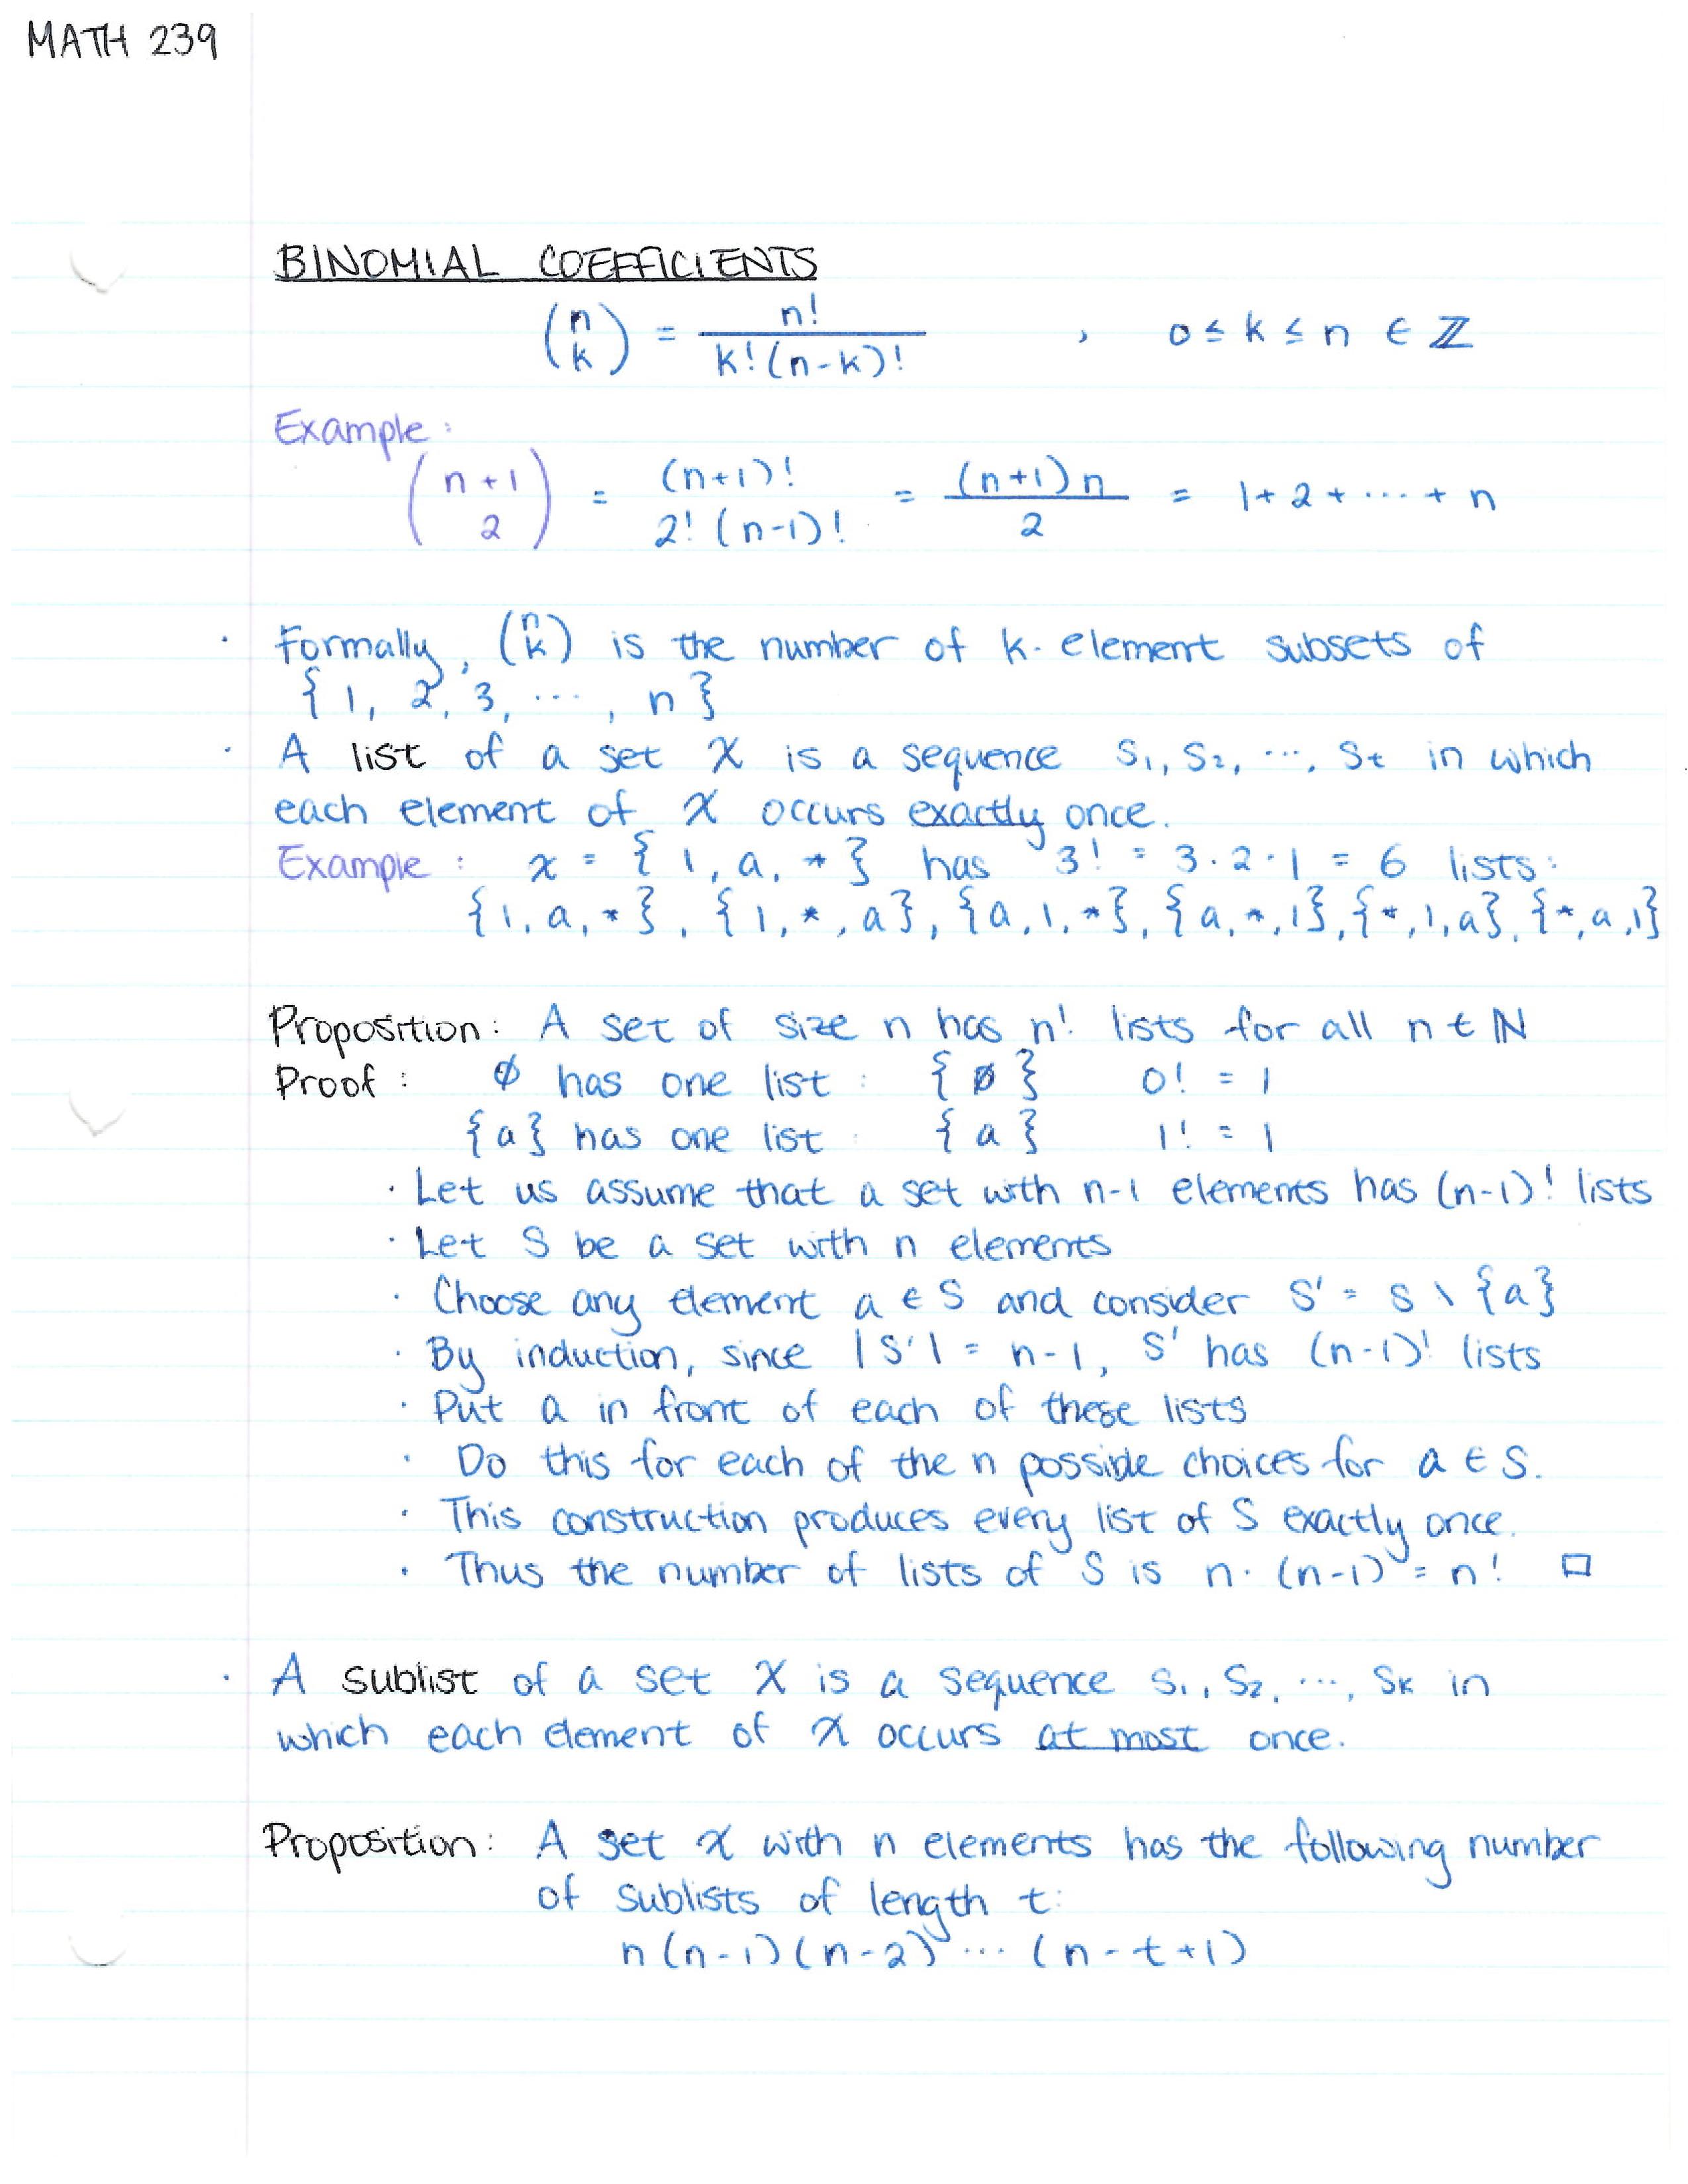 MATH 239
BINOMIAL COEFFICIENTS
(n k) = n! / k!(n-k)! , 0 ≤ k ≤ n ∈ ℤ
Example:
(n+1 2) = (n+1)! / 2!(n-1)! = (n+1)n / 2 = 1+2+...+n
· Formally, (n k) is the number of k-element subsets of
{1, 2, 3, ..., n}
· A list of a set X is a sequence S₁, S₂, ..., Sₜ in which
each element of X occurs exactly once.
Example: X = {1, a, *} has 3! = 3·2·1 = 6 lists:
{1, a, *}, {1, *, a}, {a, 1, *}, {a, *, 1}, {*, 1, a}, {*, a, 1}
Proposition: A set of size n has n! lists for all n ∈ ℕ
Proof: ∅ has one list: {∅} 0! = 1
{a} has one list: {a} 1! = 1
· Let us assume that a set with n-1 elements has (n-1)! lists
· Let S be a set with n elements
· Choose any element a ∈ S and consider S' = S \ {a}
· By induction, since |S'| = n-1, S' has (n-1)! lists
· Put a in front of each of these lists
· Do this for each of the n possible choices for a ∈ S.
· This construction produces every list of S exactly once.
· Thus the number of lists of S is n·(n-1) = n! □
· A sublist of a set X is a sequence S₁, S₂, ..., Sₖ in
which each element of X occurs at most once.
Proposition: A set X with n elements has the following number
of sublists of length t:
n(n-1)(n-2) ... (n-t+1)